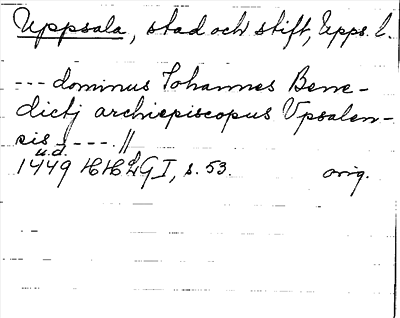 Uppsala, stad och stift, Upps. l.
--- dominus Iohannes Bene-
dictj archiepiscopus Vpsalen-
sis ----. //
u.d.
1449 HHLG I, s. 53. orig.